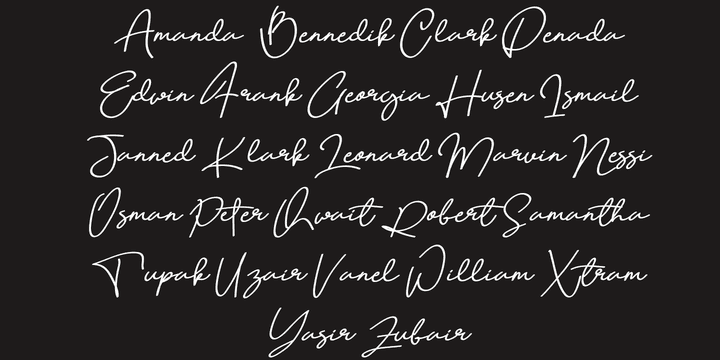 Amanda Bennedik Clark Denada
Edwin Frank Georgia Husen Ismail
Janned Klark Leonard Marvin Nessi
Osman Peter Qwait Robert Samantha
Tupak Uzair Vanel William Xtram
Yasir Zubair